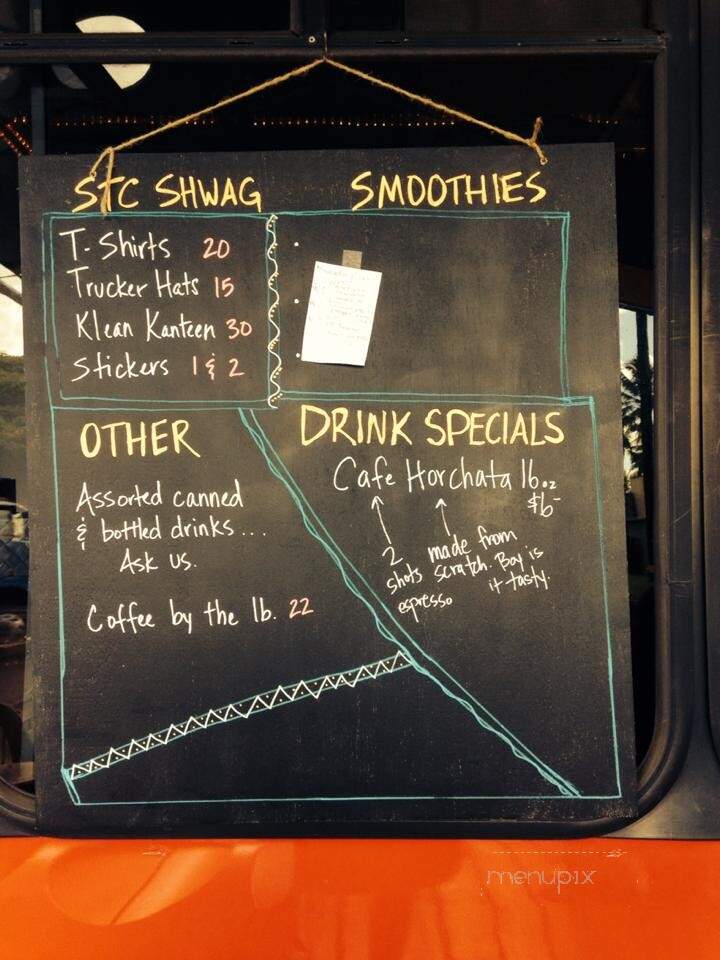 STC SHWAG
T-Shirts 20
Trucker Hats 15
Klean Kanteen 30
Stickers 1 & 2
SMOOTHIES
OTHER
Assorted canned
& bottled drinks...
Ask us.
Coffee by the lb. 22
DRINK SPECIALS
Cafe Horchata 16oz
$6-
2
shots
espresso
made from
scratch. Boy is
it tasty.
menupix